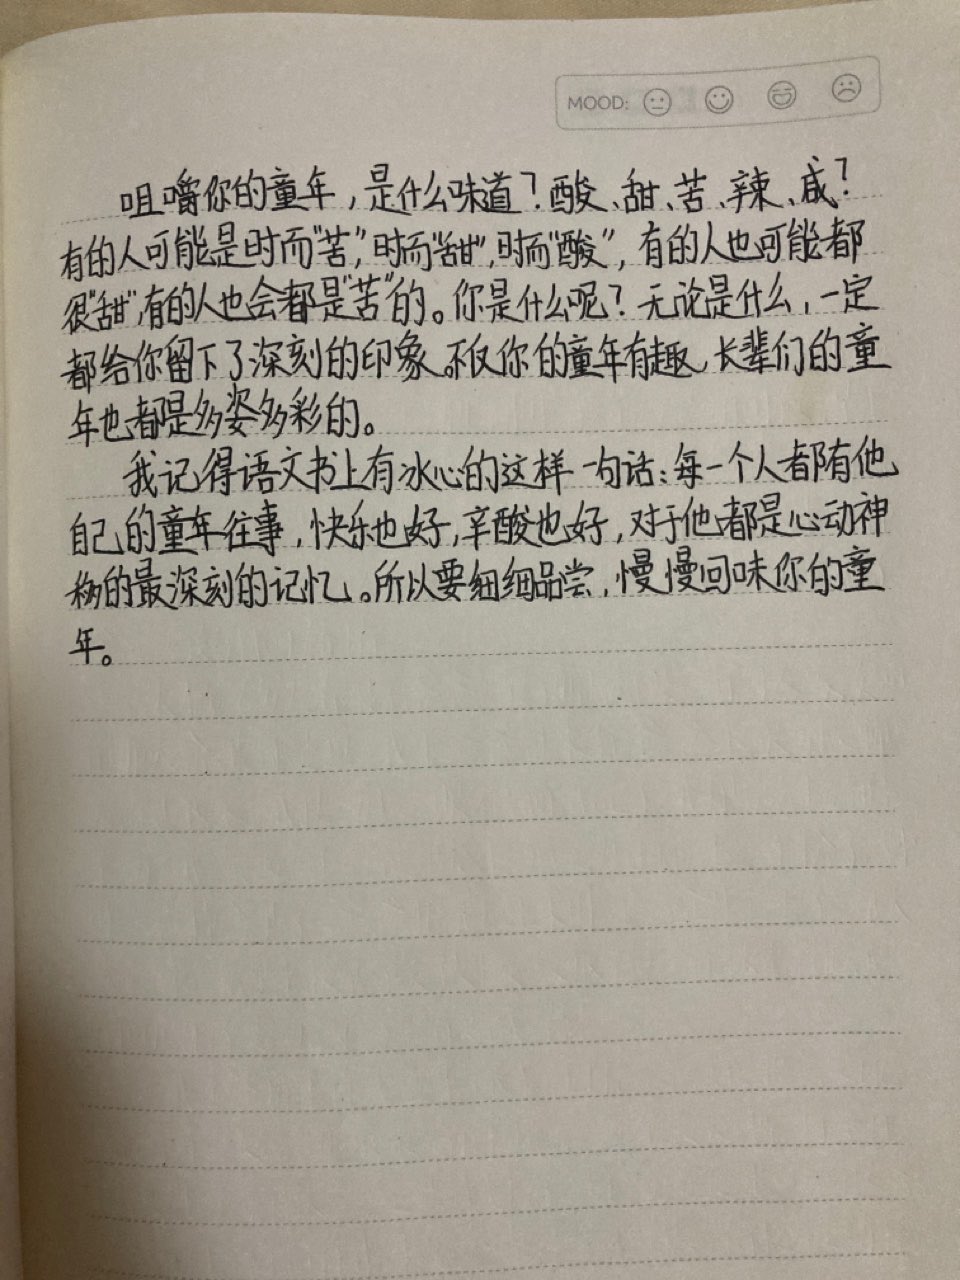 MOOD:
咀嚼你的童年，是什么味道？酸、甜、苦、辣、咸？
有的人可能是时而“苦”，时而“甜”，时而“酸”，有的人也可能都
很“甜”，有的人也会都是“苦”的。你是什么呢？无论是什么，一定
都给你留下了深刻的印象。不仅你的童年有趣，长辈们的童
年也都是多姿多彩的。
我记得语文书上有冰心的这样一句话：每一个人都有他
自己的童年往事，快乐也好，辛酸也好，对于他都是心动神
移的最深刻的记忆。所以要细细品尝，慢慢回味你的童
年。